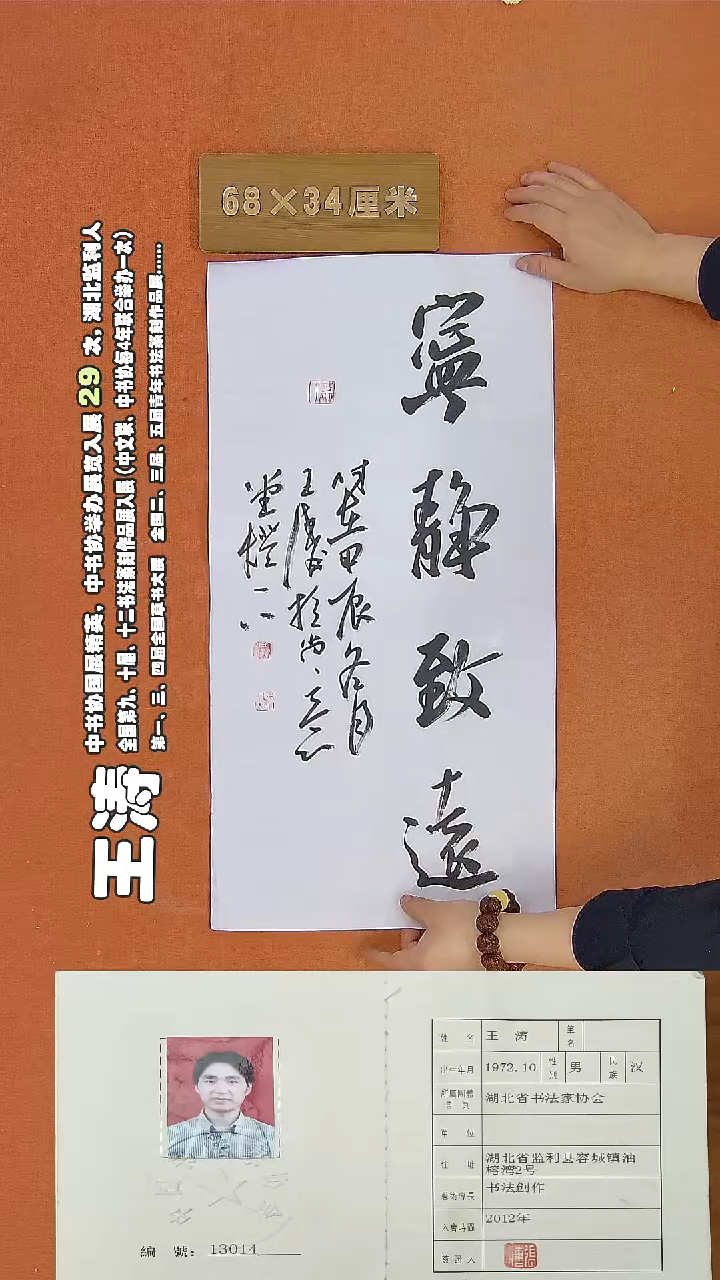 68×34厘米
寧靜致遠
時在甲辰冬月
王濤於尚意
堂灯下
王涛
中书协国展精英，中书协举办展览入展 29 次，湖北监利人
全国第九、十届、十二书法篆刻作品展入展（中文联、中书协每4年联合举办一次）
第一、三、四届全国草书大展 全国二、三届、五届青年书法篆刻作品展......
姓 名 王 涛 笔名
出生年月 1972.10 性别 男 民族 汉
所属團體會員 湖北省书法家协会
单 位
住 址 湖北省监利县容城镇油榨湾2号
藝術專長 书法创作
入會時間 2012年
簽發人
編 號：13014